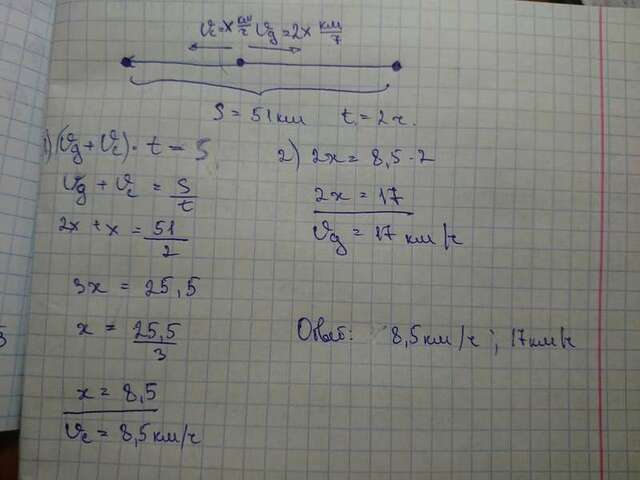 Vc=x км/ч Vg=2x км/ч
S = 51 км t = 2ч.
1) (Vg + Vc) · t = S
Vg + Vc = S/t
2x + x = 51/2
3x = 25,5
x = 25,5/3
x = 8,5
Vc = 8,5 км/ч
2) 2x = 8,5 · 2
2x = 17
Vg = 17 км/ч
Ответ: 8,5 км/ч ; 17 км/ч